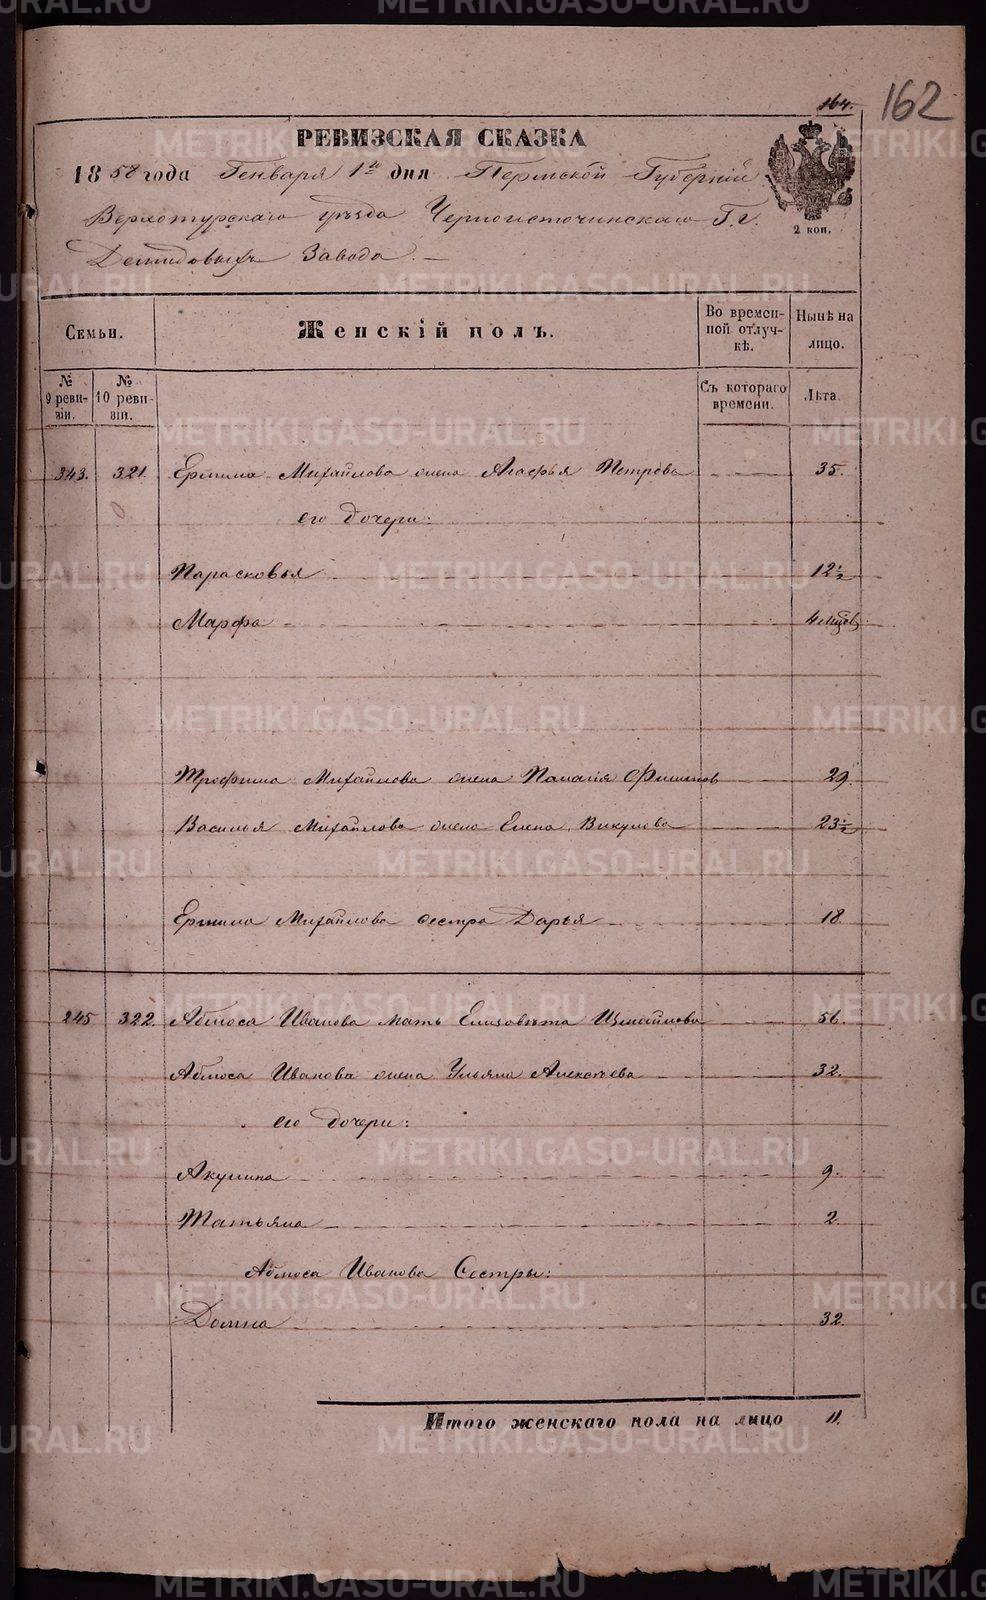 164.
162
РЕВИЗСКАЯ СКАЗКА
1858 года Генваря 1го дня Пермской Губерніи
Верхотурскаго уѣзда Черноисточинскаго Г.г.
2 коп.
Демидовыхъ Завода.
Семьи.
Женскій полъ.
Во времен-
ной отлуч-
кѣ.
Нынѣ на
лицо.
№
9 реви-
зіи.
№
10 реви-
зіи.
Съ котораго
времени.
Лѣта.
343. 321. Ермила Михайлова жена Агафья Петрова 35.
его дочери:
Парасковья 12½
Марфа 4 мѣсѣв
Трофима Михайлова жена Паланія 29.
Василья Михайлова жена Елена Викулова 23½
Ермила Михайлова сестра Дарья 18.
245 322. Абмоса Иванова мать Елизовѣта Измайлова 56.
Абмоса Иванова жена Ульяна Алексѣева 32.
его дочери:
Акулина 9.
Татьяна 2.
Абмоса Иванова Сестры:
Домна 32.
Итого женскаго пола на лицо 11.
METRIKI.GASO-URAL.RU